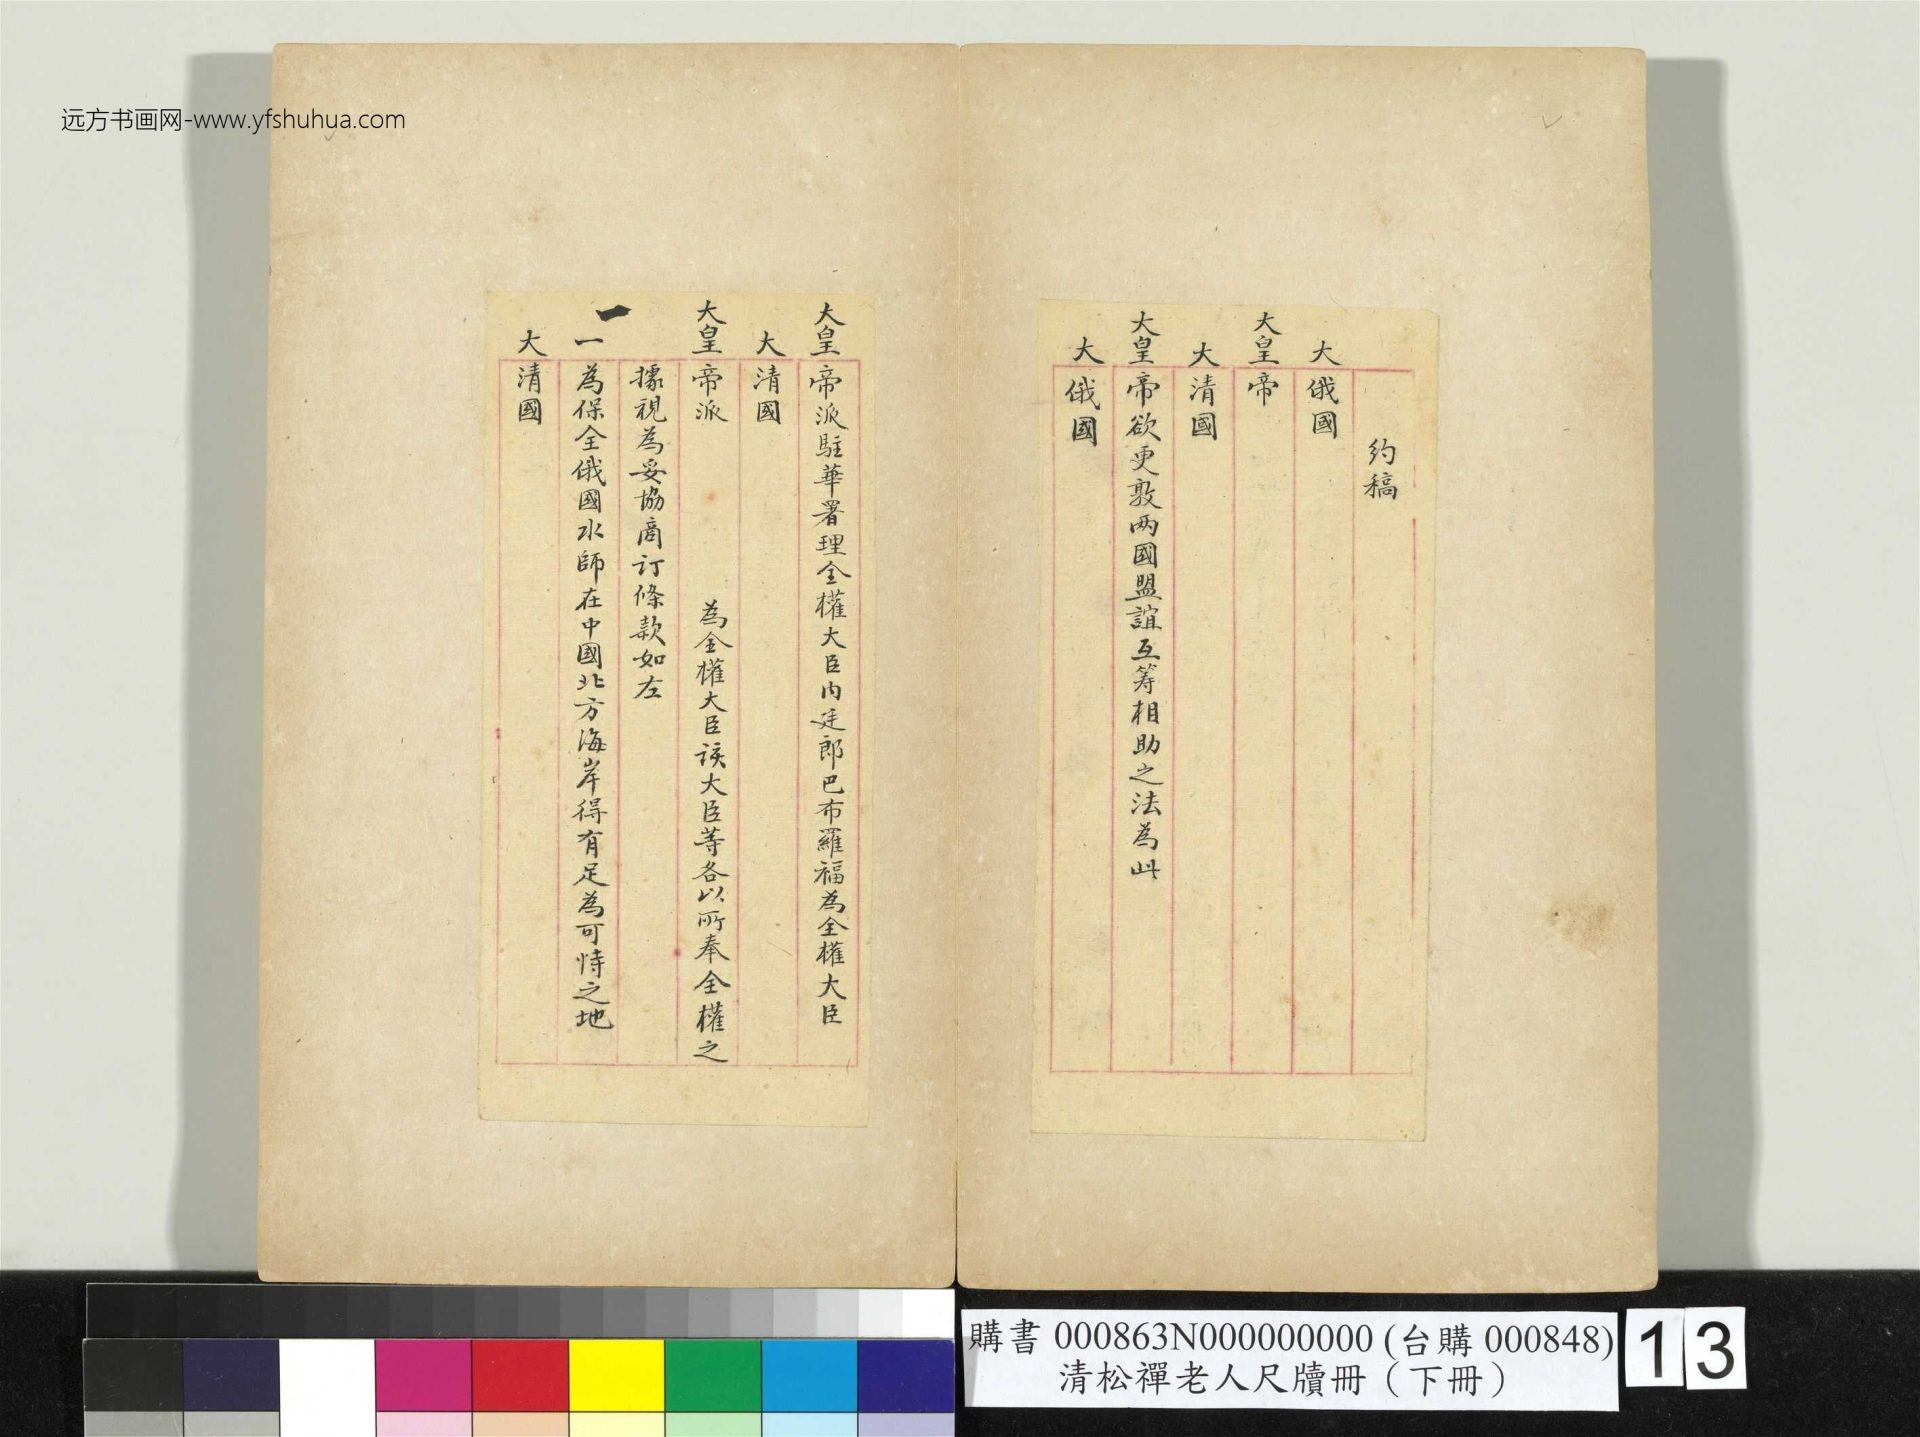 远方书画网-www.yfshuhua.com
約稿
大俄國
大皇帝
大清國
大皇帝欲更敦两國盟誼互筹相助之法為此
大俄國
大皇帝派駐華署理全權大臣内廷郎巴布羅福為全權大臣
大清國
大皇帝派 為全權大臣該大臣等各以所奉全權之
據視為妥協商订條款如左
一
一為保全俄國水師在中國北方海岸得有足為可恃之地
大清國
購書 000863N000000000 (台購 000848)
清松禪老人尺牘冊（下冊）
13